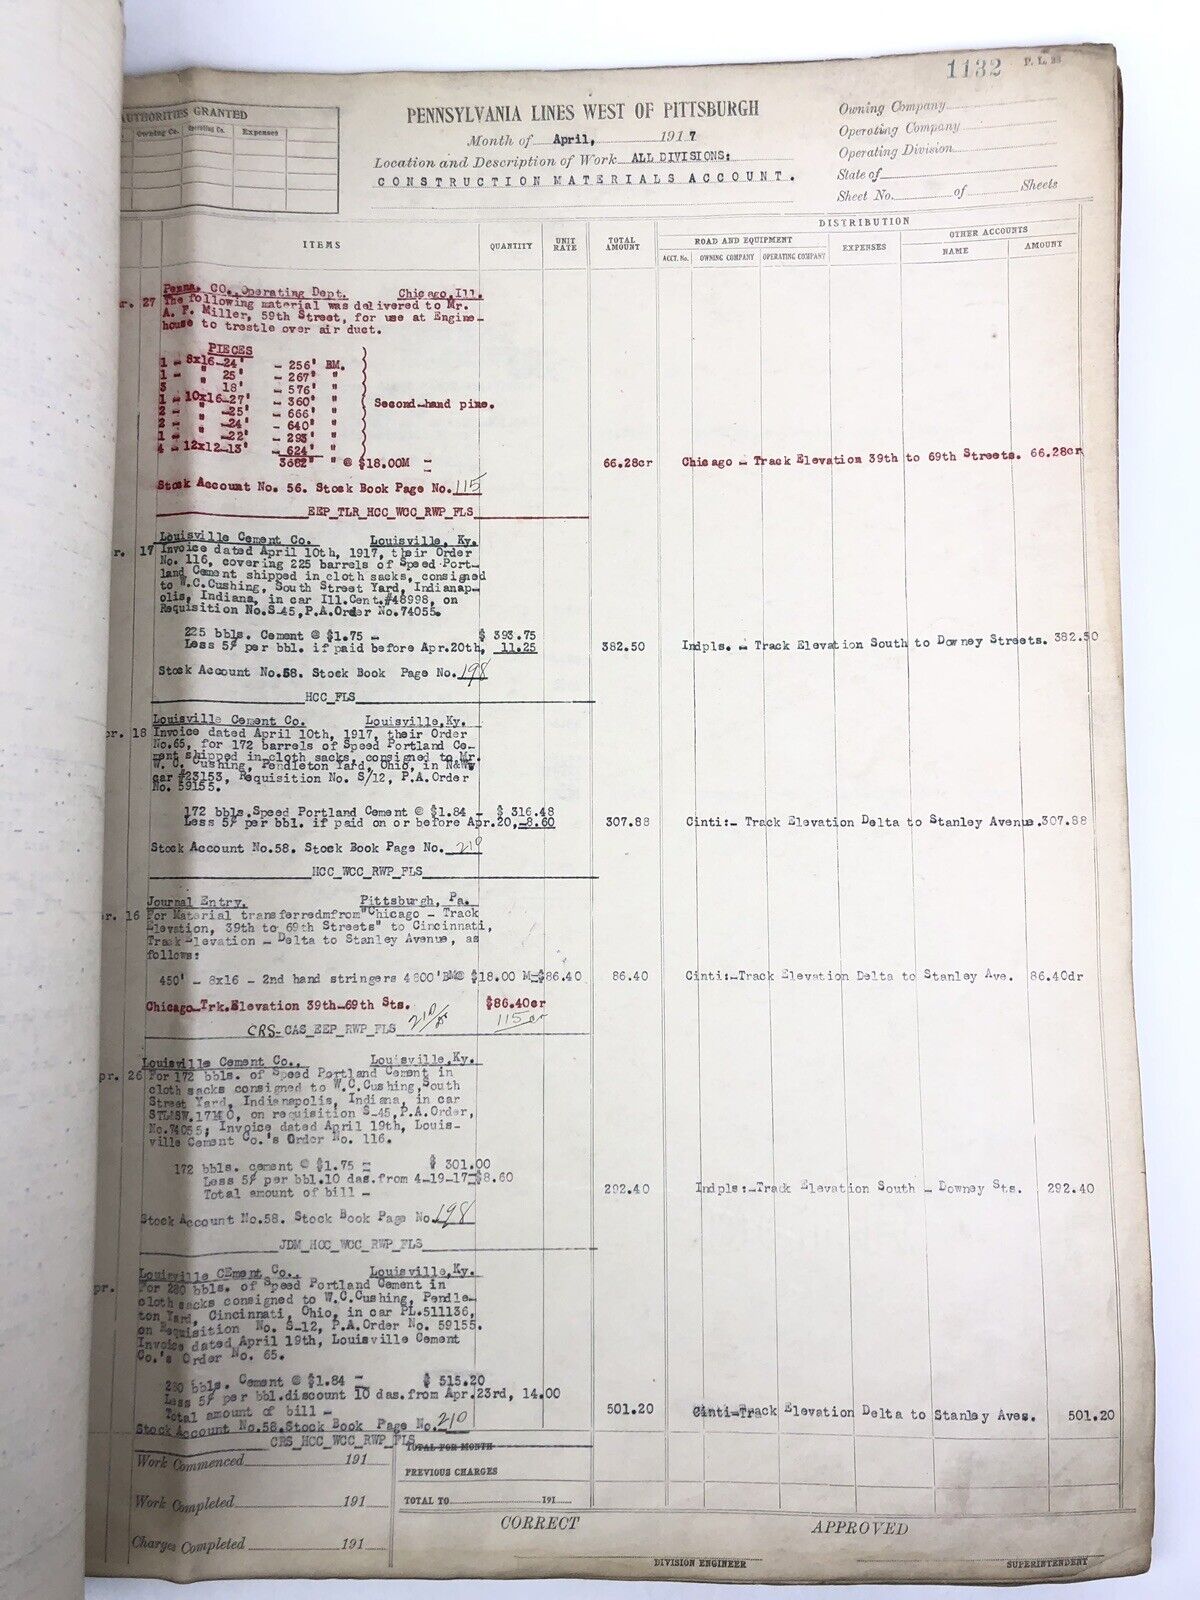 1132 P. L. 28
AUTHORITIES GRANTED
Owning Co. Operating Co. Expenses
PENNSYLVANIA LINES WEST OF PITTSBURGH
Month of April, 1917
Location and Description of Work ALL DIVISIONS:
CONSTRUCTION MATERIALS ACCOUNT.
Owning Company
Operating Company
Operating Division
State of
Sheet No. of Sheets
ITEMS
QUANTITY
UNIT RATE
TOTAL AMOUNT
DISTRIBUTION
ROAD AND EQUIPMENT
ACCT. No. OWNING COMPANY OPERATING COMPANY
EXPENSES
OTHER ACCOUNTS
NAME AMOUNT
Penna. CO., Operating Dept. Chicago, Ill.
r. 27 The following material was delivered to Mr.
A. F. Miller, 59th Street, for use at Engine-
house to trestle over air duct.
PIECES
1 - 8x16-24' - 256' BM.
1 - " 25' - 267' "
3 " 18' - 576' "
1 - 10x16-27' - 360' "
2 - " -25' - 666' "
2 - " -24' - 640' "
1 - " -22' - 293' "
4 - 12x12-13' - 624' "
Second-hand pine.
3682' " @ $18.00M = 66.28cr Chicago - Track Elevation 39th to 69th Streets. 66.28cr
Stock Account No. 56. Stock Book Page No. 115
EEP_TLR_HCC_WCC_RWP_FLS
Louisville Cement Co. Louisville, Ky.
r. 17 Invoice dated April 10th, 1917, their Order
No. 116, covering 225 barrels of Speed Port-
land Cement shipped in cloth sacks, consigned
to W.C.Cushing, South Street Yard, Indianap-
olis, Indiana, in car Ill.Cent.#48998, on
Requisition No.S-45,P.A.Order No.74055.
225 bbls. Cement @ $1.75 - $ 393.75
Less 5¢ per bbl. if paid before Apr.20th, 11.25 382.50 Indpls. - Track Elevation South to Downey Streets. 382.50
Stock Account No.58. Stock Book Page No. 198
HCC_FLS
Louisville Cement Co. Louisville,Ky.
pr. 18 Invoice dated April 10th, 1917, their Order
No.65, for 172 barrels of Speed Portland Ce-
ment shipped in cloth sacks, consigned to Mr.
W. C. Cushing, Pendleton Yard, Ohio, in N&W
car #23153, Requisition No. S/12, P.A.Order
No. 59155.
172 bbls.Speed Portland Cement @ $1.84 - $ 316.48
Less 5¢ per bbl. if paid on or before Apr.20,-8.60 307.88 Cinti:- Track Elevation Delta to Stanley Avenue.307.88
Stock Account No.58. Stock Book Page No. 210
HCC_WCC_RWP_FLS
Journal Entry. Pittsburgh, Pa.
r. 16 For Material transferredmfrom"Chicago - Track
Elevation, 39th to 69th Streets" to Cincinnati,
Track Elevation - Delta to Stanley Avenue, as
follows:
450' - 8x16 - 2nd hand stringers 4800'BM@ $18.00 M=$86.40 86.40 Cinti:-Track Elevation Delta to Stanley Ave. 86.40dr
Chicago Trk.Elevation 39th-69th Sts. $86.40cr
115 cr
CRS-CAS_EEP_RWP_FLS 210
Louisville Cement Co., Louisville,Ky.
pr. 26 For 172 bbls. of Speed Portland Cement in
cloth sacks consigned to W.C.Cushing,South
Street Yard, Indianapolis, Indiana, in car
on requisition S-45,P.A.Order,
No.74055; Invoice dated April 19th, Louis-
ville Cement Co.'s Order No. 116.
172 bbls. cement @ $1.75 = $ 301.00
Less 5¢ per bbl.10 das.from 4-19-17=$8.60
Total amount of bill - 292.40 Indpls:-Track Elevation South - Downey Sts. 292.40
Stock Account No.58. Stock Book Page No. 198
JDM_HCC_WCC_RWP_FLS
Louisville CEment Co., Louisville,Ky.
pr. For 280 bbls. of Speed Portland Cement in
cloth sacks consigned to W.C.Cushing, Pendle-
ton Yard, Cincinnati, Ohio, in car PL.511136,
on Requisition No. S-12, P.A.Order No. 59155.
Invoice dated April 19th, Louisville Cement
Co.'s Order No. 65.
280 bbls. Cement @ $1.84 = $ 515.20
Less 5¢ per bbl.discount 10 das.from Apr.23rd, 14.00
Total amount of bill - 501.20 Cinti-Track Elevation Delta to Stanley Aves. 501.20
Stock Account No.58.Stock Book Page No. 210
CRS_HCC_WCC_RWP_FLS
TOTAL FOR MONTH
Work Commenced 191
PREVIOUS CHARGES
Work Completed 191
TOTAL TO 191
Charges Completed 191
CORRECT
APPROVED
DIVISION ENGINEER
SUPERINTENDENT